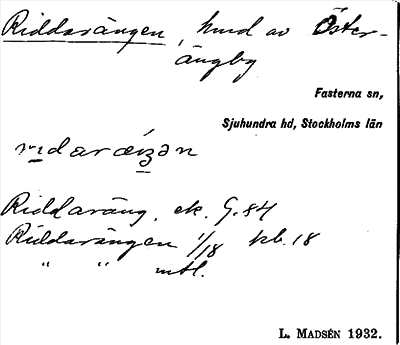 Riddarängen, hmd av Öster-
ängby
Fasterna sn,
Sjuhundra hd, Stockholms län
Riddaräng, ek. G. 84
Riddarängen 1/18 kb. 18
" " mtl.
L. MADSÉN 1932.